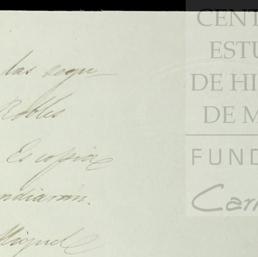 las segu
Robles
Es copia
ndiarán.
Miguel
CENT
ESTU
DE HI
DE M
FUND
Car